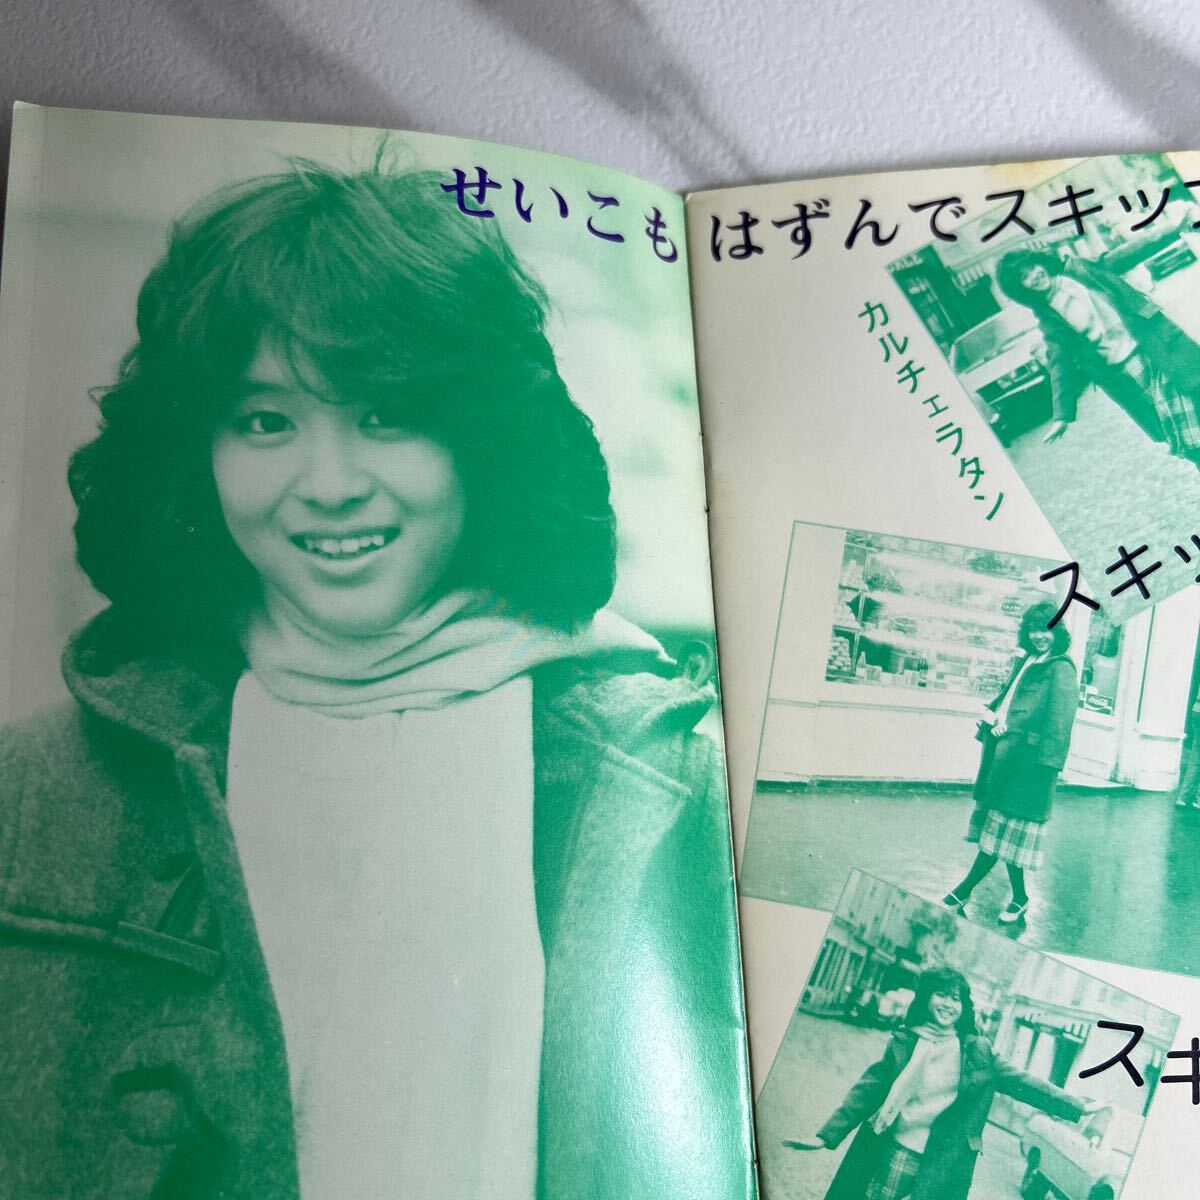 せいこも はずんでスキップ
カルチェラタン
スキッ
スキ